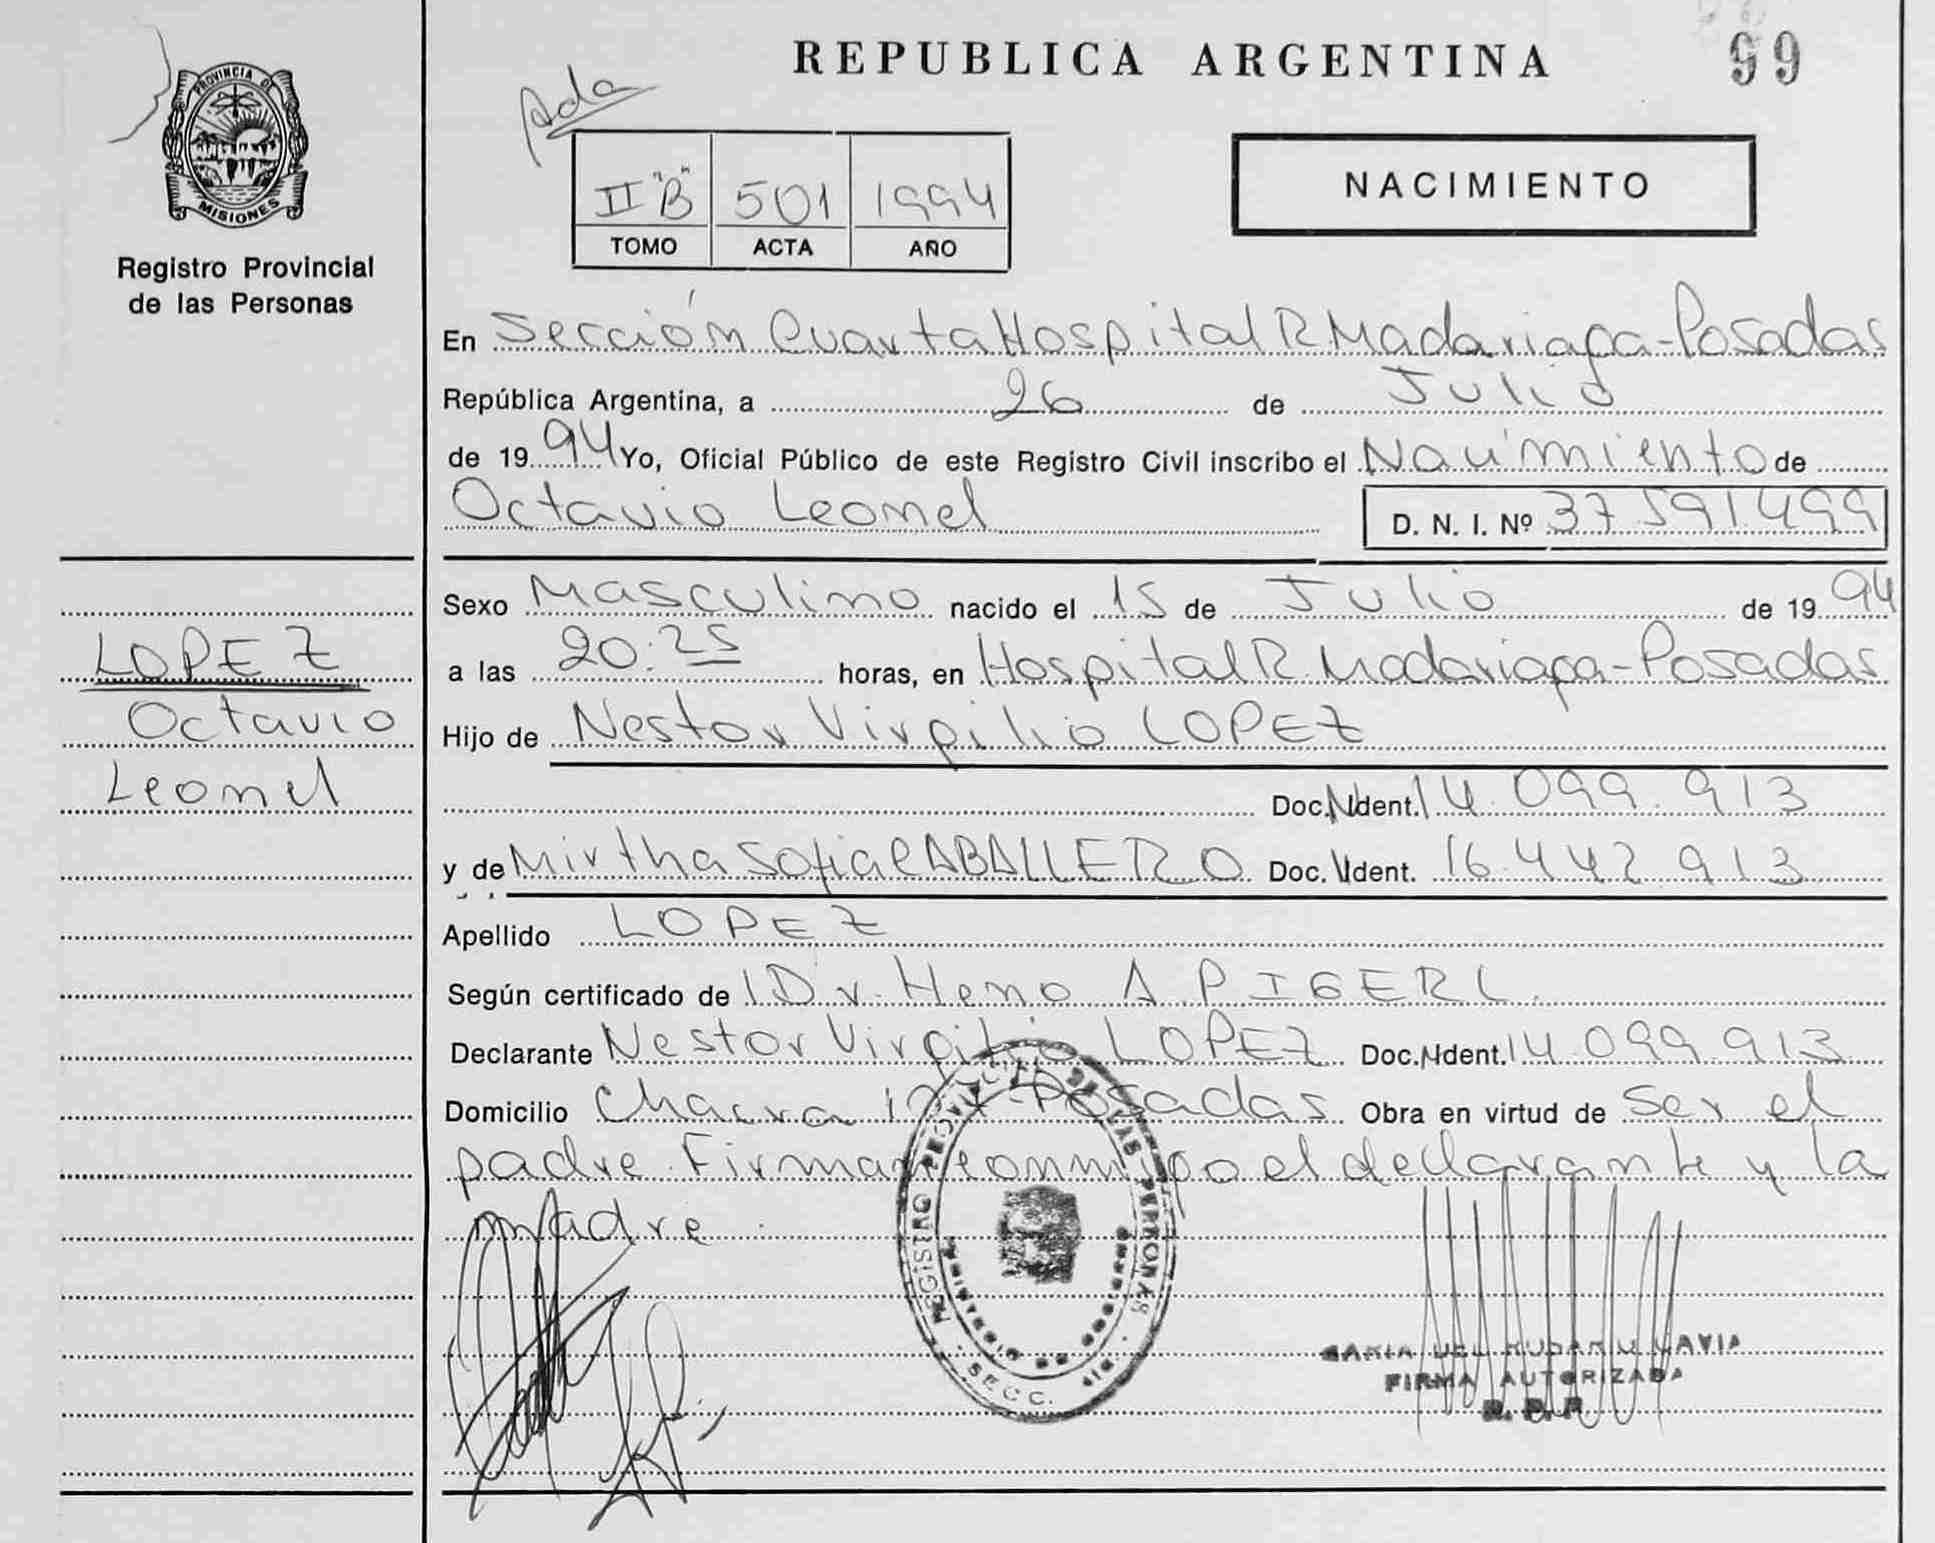 REPUBLICA ARGENTINA
99
Pda
PROVINCIA DE
MISIONES
Registro Provincial
de las Personas
II "B" 501 1994
TOMO ACTA AÑO
NACIMIENTO
En Sección Cuarta Hospital R Madariaga - Posadas
República Argentina, a 26 de Julio
de 1994 Yo, Oficial Público de este Registro Civil inscribo el Nacimiento de
Octavio Leonel
D. N. I. Nº 37591499
LOPEZ
Octavio
Leonel
Sexo Masculino nacido el 15 de Julio de 1994
a las 20:25 horas, en Hospital R. Madariaga - Posadas
Hijo de Nestor Virgilio LOPEZ
Doc. Ident. 14.099.913
y de Mirtha Sofia CABALLERO Doc. Ident. 16.442.913
Apellido LOPEZ
Según certificado de Dr. A. PIGERL
Declarante Nestor Virgilio LOPEZ Doc. Ident. 14.099.913
Domicilio Chacra Posadas Obra en virtud de Ser el
padre. Firman conmigo el declarante y la
madre.
REGISTRO PROVINCIAL DE LAS PERSONAS
SECC.
FIRMA AUTORIZADA